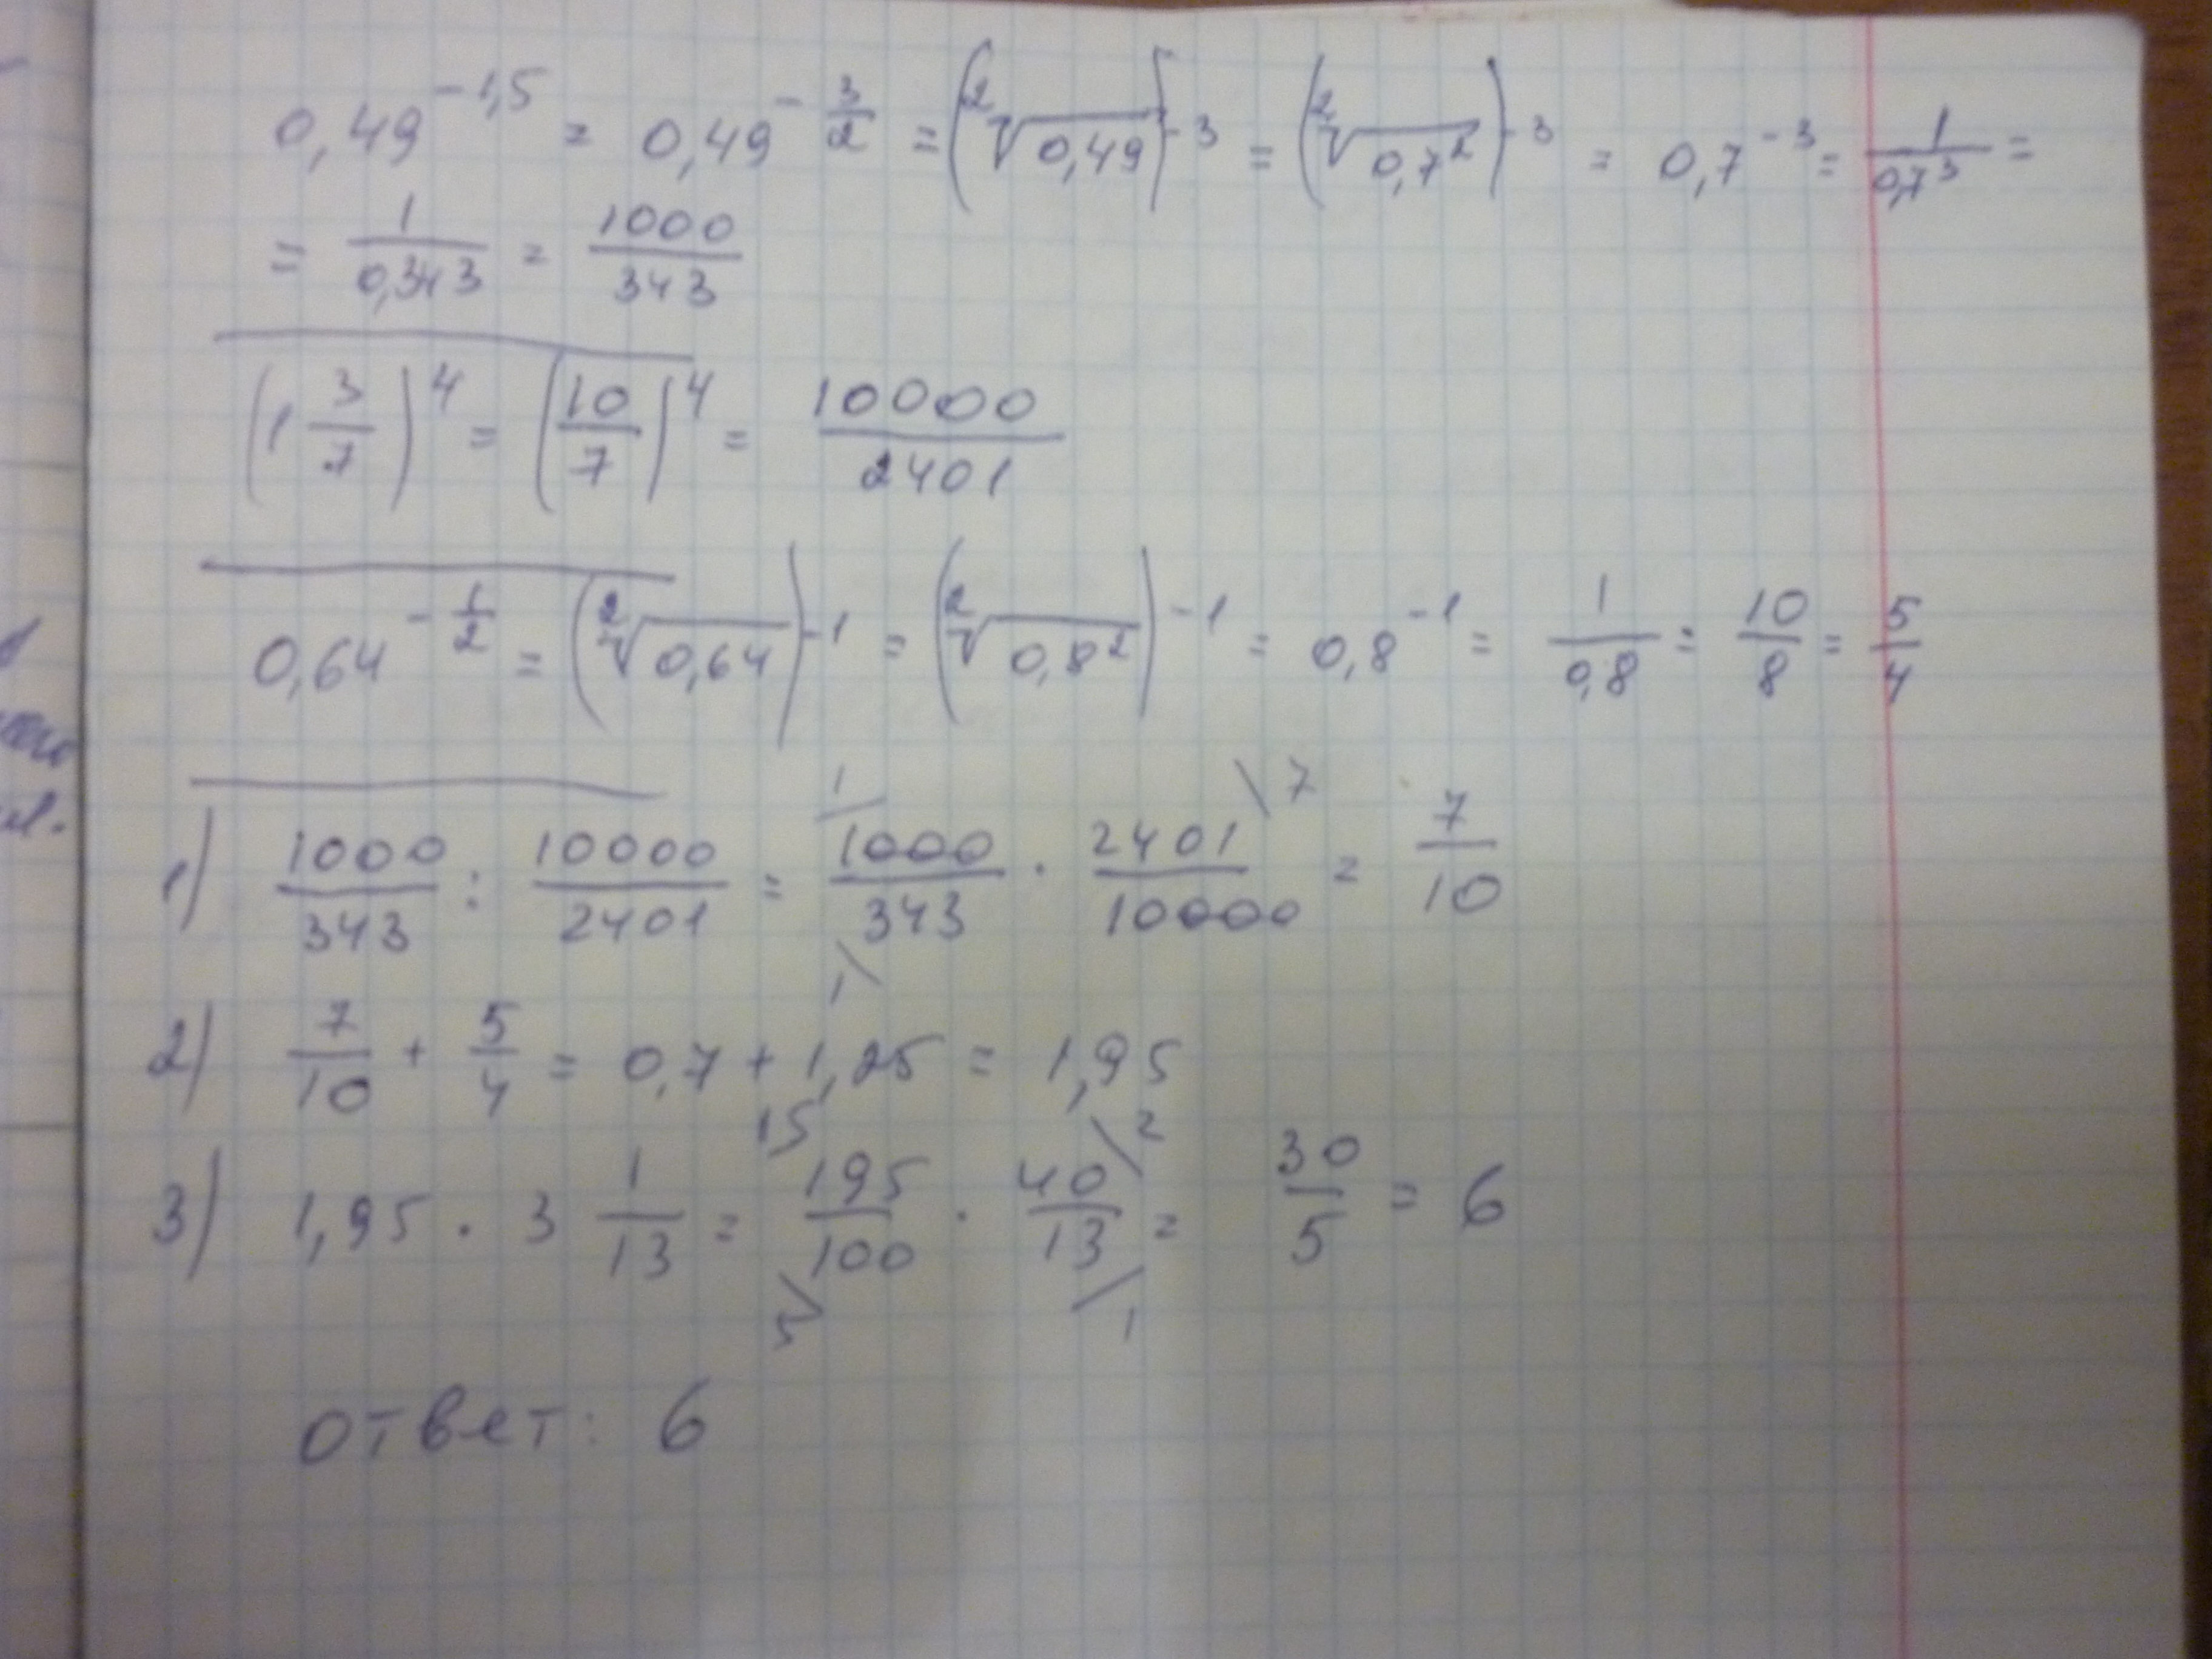 0,49^{-1,5} = 0,49^{-\frac{3}{2}} = (\sqrt[2]{0,49})^{-3} = (\sqrt[2]{0,7^2})^{-3} = 0,7^{-3} = \frac{1}{0,7^3} =
= \frac{1}{0,343} = \frac{1000}{343}
(1\frac{3}{7})^4 = (\frac{10}{7})^4 = \frac{10000}{2401}
0,64^{-\frac{1}{2}} = (\sqrt[2]{0,64})^{-1} = (\sqrt[2]{0,8^2})^{-1} = 0,8^{-1} = \frac{1}{0,8} = \frac{10}{8} = \frac{5}{4}
1) \frac{1000}{343} : \frac{10000}{2401} = \frac{1000 \ 1}{343 \ 1} \cdot \frac{2401 \ 7}{10000} = \frac{7}{10}
2) \frac{7}{10} + \frac{5}{4} = 0,7 + 1,25 = 1,95
3) 1,95 \cdot 3\frac{1}{13} = \frac{195 \ 15}{100 \ 5} \cdot \frac{40 \ 2}{13 \ 1} = \frac{30}{5} = 6
ответ: 6